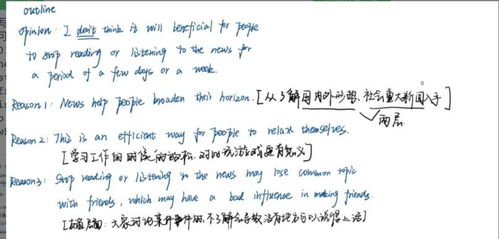 outline
Opinion: I don't think it will beneficial for people
to stop reading or listening to the news for
a period of a few days or a week.
Reason 1: News help people broaden their horizon. [从了解国内外形势、社会重大新闻入手]
两层
Reason 2: This is an efficient way for people to relax themselves.
[学习工作的时候 放松, 对比玩游戏更有意义]
Reason 3: Stop reading or listening to the news may lose common topic
with friends, which may have a bad influence in making friends.
大家讨论某件事件时, 不了解会导致没有